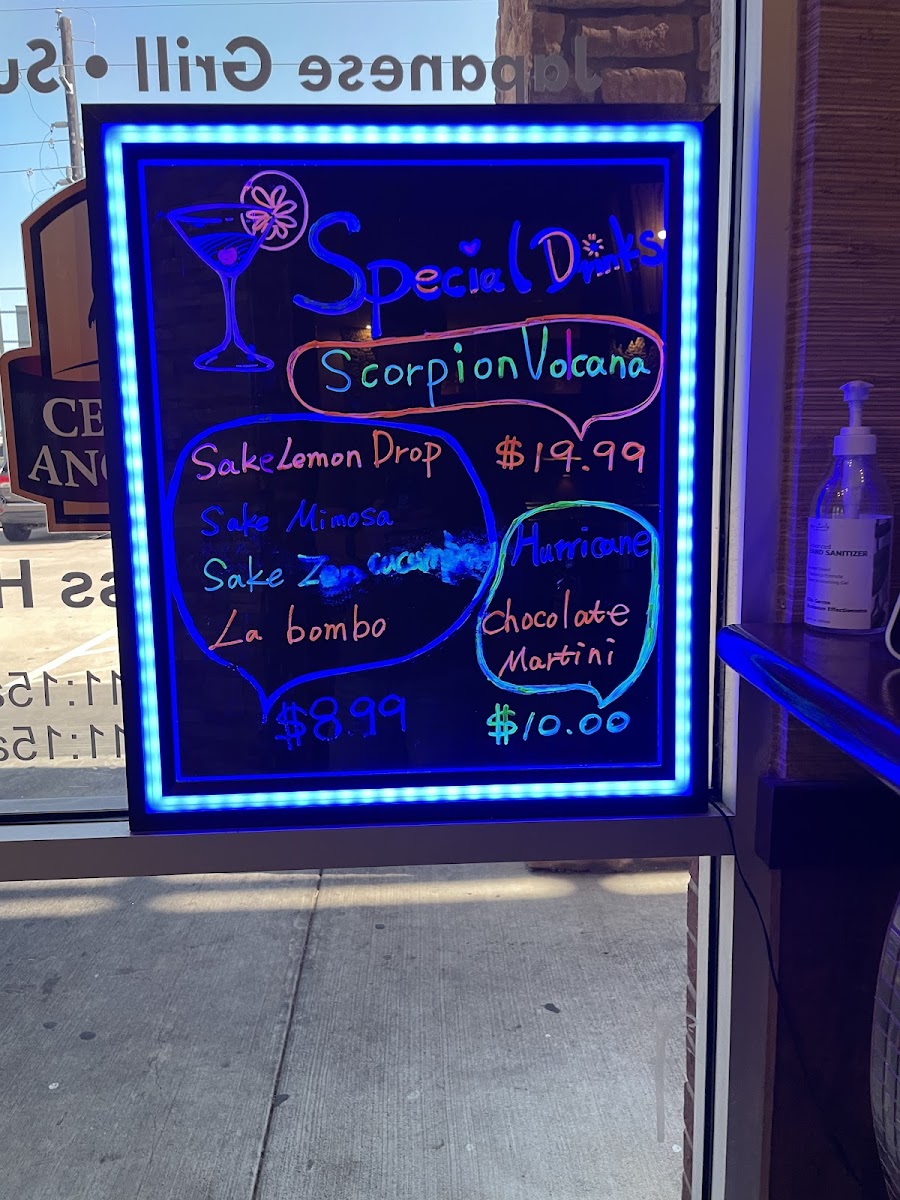 Japanese Grill • Su
CE
ANG
Special Drinks
Scorpion Volcana
$19.99
Sake Lemon Drop
Sake Mimosa
Sake Zen cucumber
La bombo
$8.99
Hurricane
chocolate
Martini
$10.00
ss H
11:15a
11:15a
HAND SANITIZER